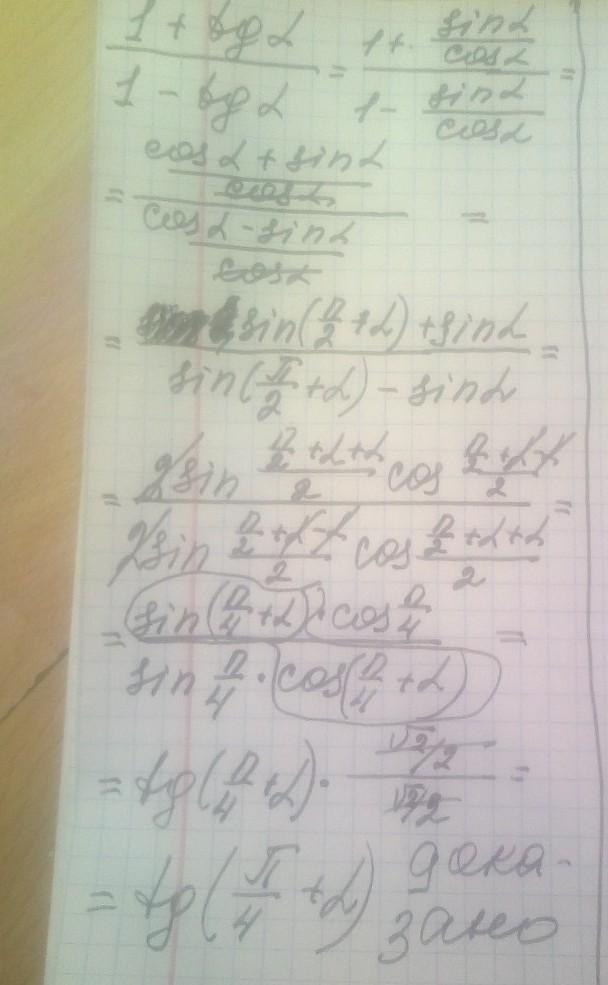 (1 + tg α)/(1 - tg α) = (1 + sin α/cos α)/(1 - sin α/cos α) =
= ((cos α + sin α)/cos α)/((cos α - sin α)/cos α) =
= (sin(π/2 + α) + sin α)/(sin(π/2 + α) - sin α) =
= (2 sin (π/2 + α + α)/2 cos (π/2 + α - α)/2)/(2 sin (π/2 + α - α)/2 cos (π/2 + α + α)/2) =
= (sin(π/4 + α) · cos π/4)/(sin π/4 · cos(π/4 + α)) =
= tg(π/4 + α) · (√2/2)/(√2/2) =
= tg(π/4 + α) дока-
зано